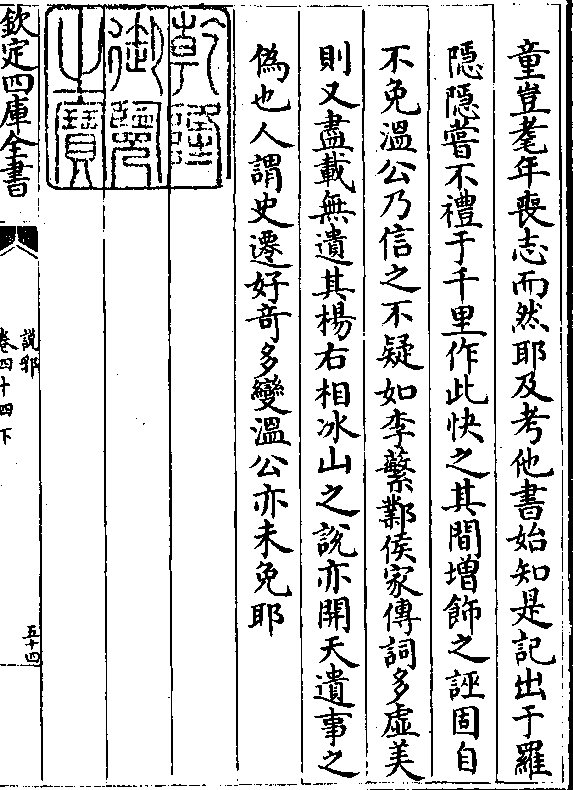 童豈耄年喪志而然耶及考他書始知是記出于羅
隱隱嘗不禮于千里作此快之其間增飾之誣固自
不免溫公乃信之不疑如李蘩鄴侯家傳詞多虛美
則又盡載無遺其楊右相冰山之說亦開天遺事之
偽也人謂史遷好奇多變溫公亦未免耶
乾隆
御覽
之寶
欽定四庫全書
說郛
卷四十四下
五十四